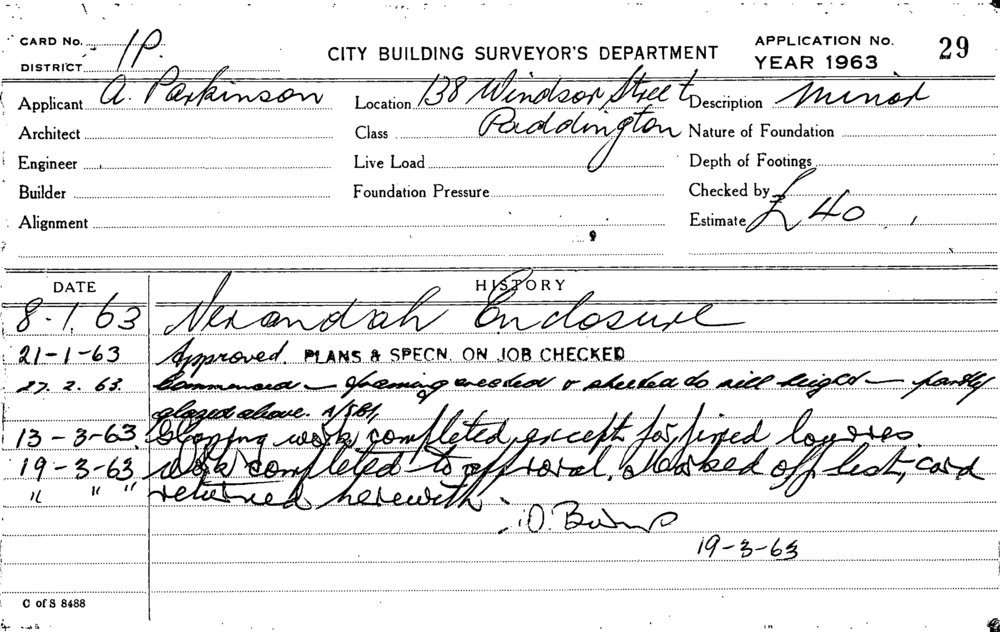 CARD No. 1P.
DISTRICT
CITY BUILDING SURVEYOR'S DEPARTMENT
APPLICATION No. 29
YEAR 1963
Applicant A. Parkinson Location 138 Windsor Street Description Minor
Architect Class Paddington Nature of Foundation
Engineer Live Load Depth of Footings
Builder Foundation Pressure Checked by
Alignment Estimate £40
DATE HISTORY
8-1.63 Verandah Enclosure
21-1-63 Approved. PLANS & SPECN. ON JOB CHECKED
27.2.63. Commenced – framing erected & sheeted to sill height – partly
glazed above.
13-3-63. Glazing work completed except for fixed louvres.
19-3-63. Work completed to approval. Marked off list, card
" " " returned herewith
19-3-63
C of S 8488